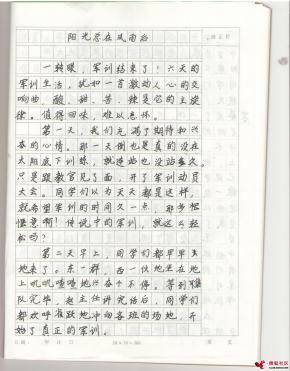 阳光总在风雨后
一转眼，军训结束了！六天的
军训生活，犹如一首激动人心的交
响曲，酸、甜、苦、辣是它的主旋
律。值得回味，难以忘怀。
第一天，我们充满了期待和兴
奋的心情。那一天倒也是真的没在
太阳底下训练，就连站也没站多久。
只是跟教官见了面，开了军训动员
大会。同学们以为天天都是这样，
就希望军训的时间久一点，那多么
惬意啊！传说中的军训，就这么轻
松吗？
第二天早上，同学们都早早
地来了。东一群，西一伙地坐在地
上叽叽喳喳地兴奋个不停。等到
队完毕，赵主任讲完话后，同学们
都欢呼雀跃地冲向各班的场地，开
始了真正的军训。